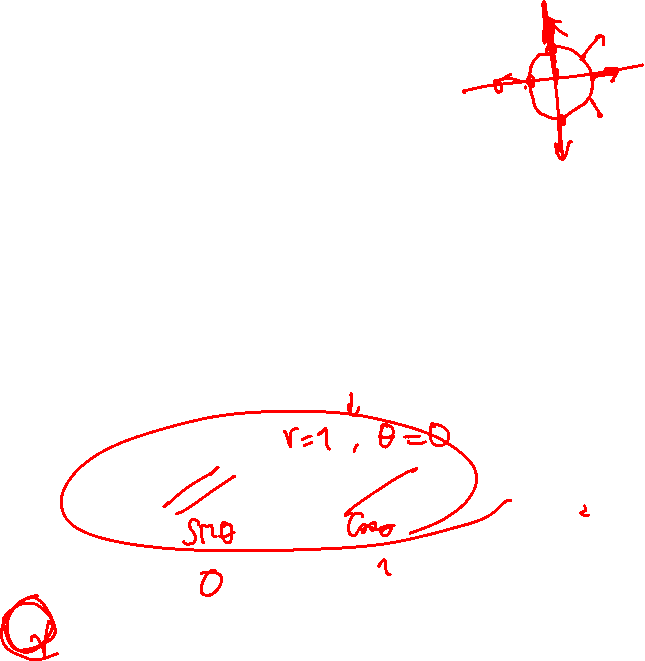 r=1, θ=0
sinθ cosθ
0 1